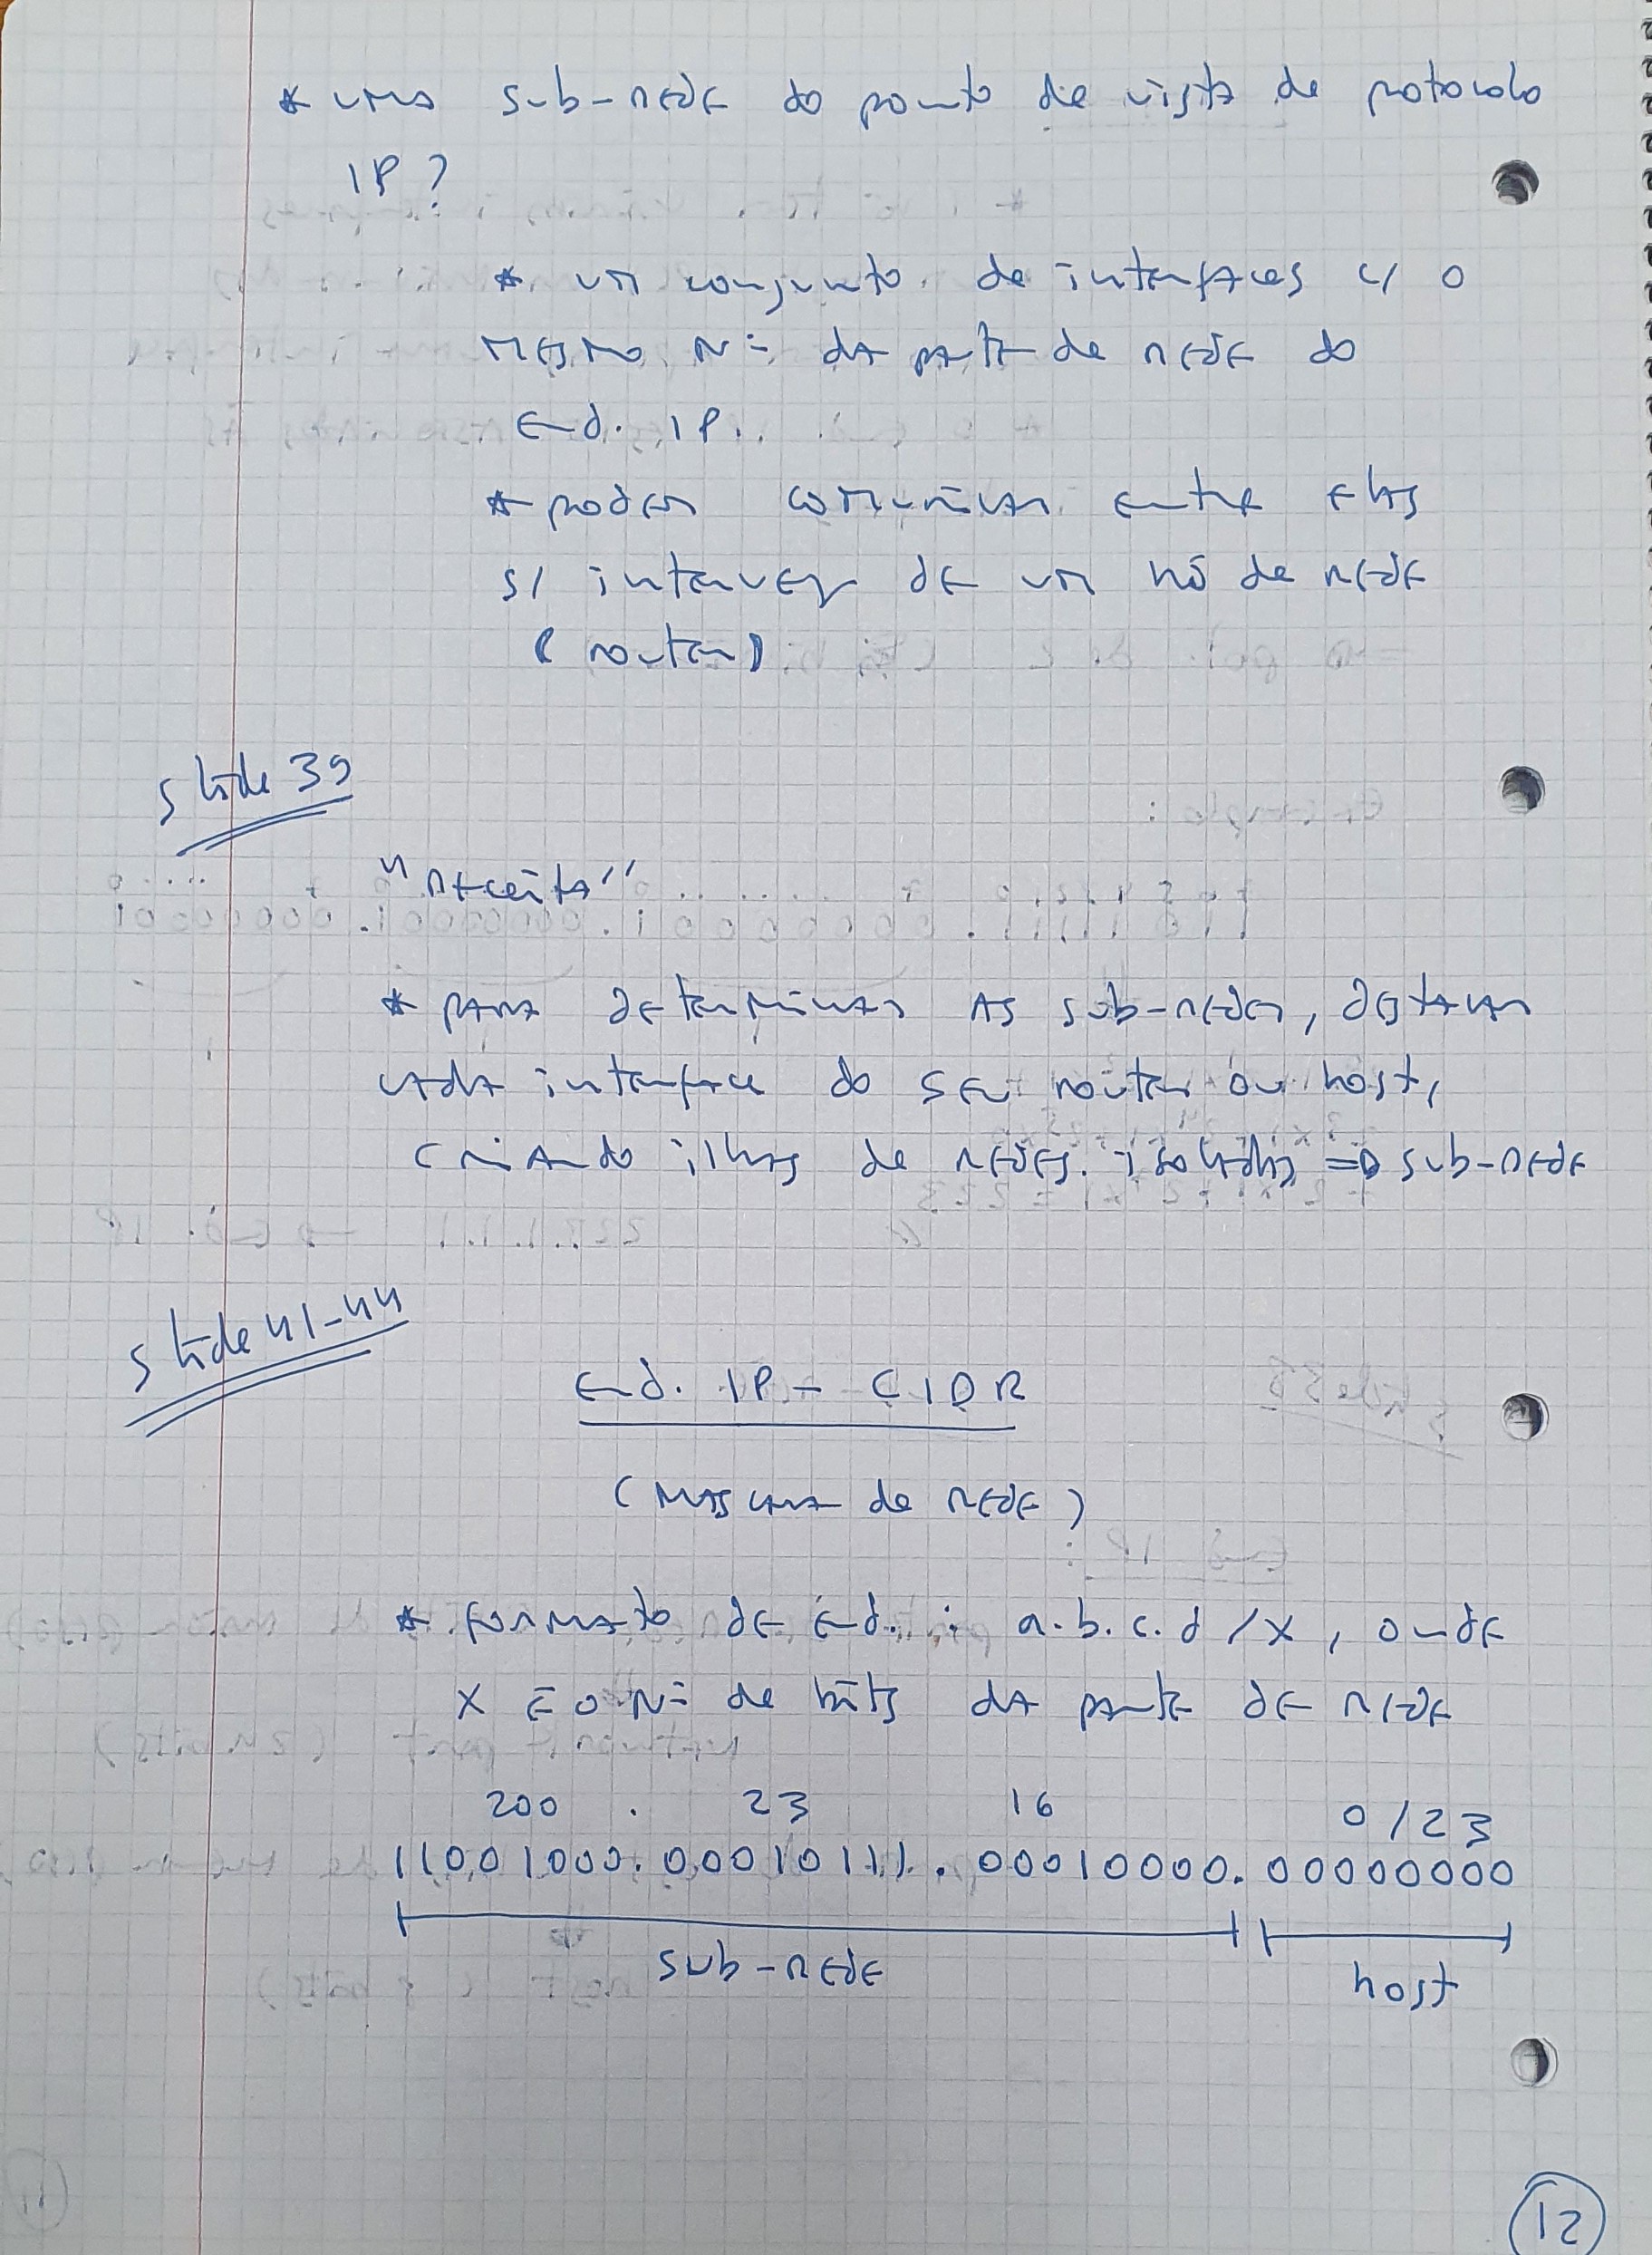 * uma sub-rede do ponto de vista de protocolo
IP?
* um conjunto de interfaces c/ o
mesmo Nº da parte de rede do
End. IP.
* podem comunicar entre elas
s/ interveç de um nó de rede
(router)
slide 39
"Receita"
* para determinar as sub-redes, destacar
cada interface do seu router ou host,
criando ilhas de redes isoladas => sub-rede
slide 41-44
End. IP - CIDR
(mascara de rede)
* formato de End. : a.b.c.d/x, onde
x é o Nº de bits da parte de rede
200 . 23 16 0/23
11001000.00010111.00010000.00000000
sub-rede host
12